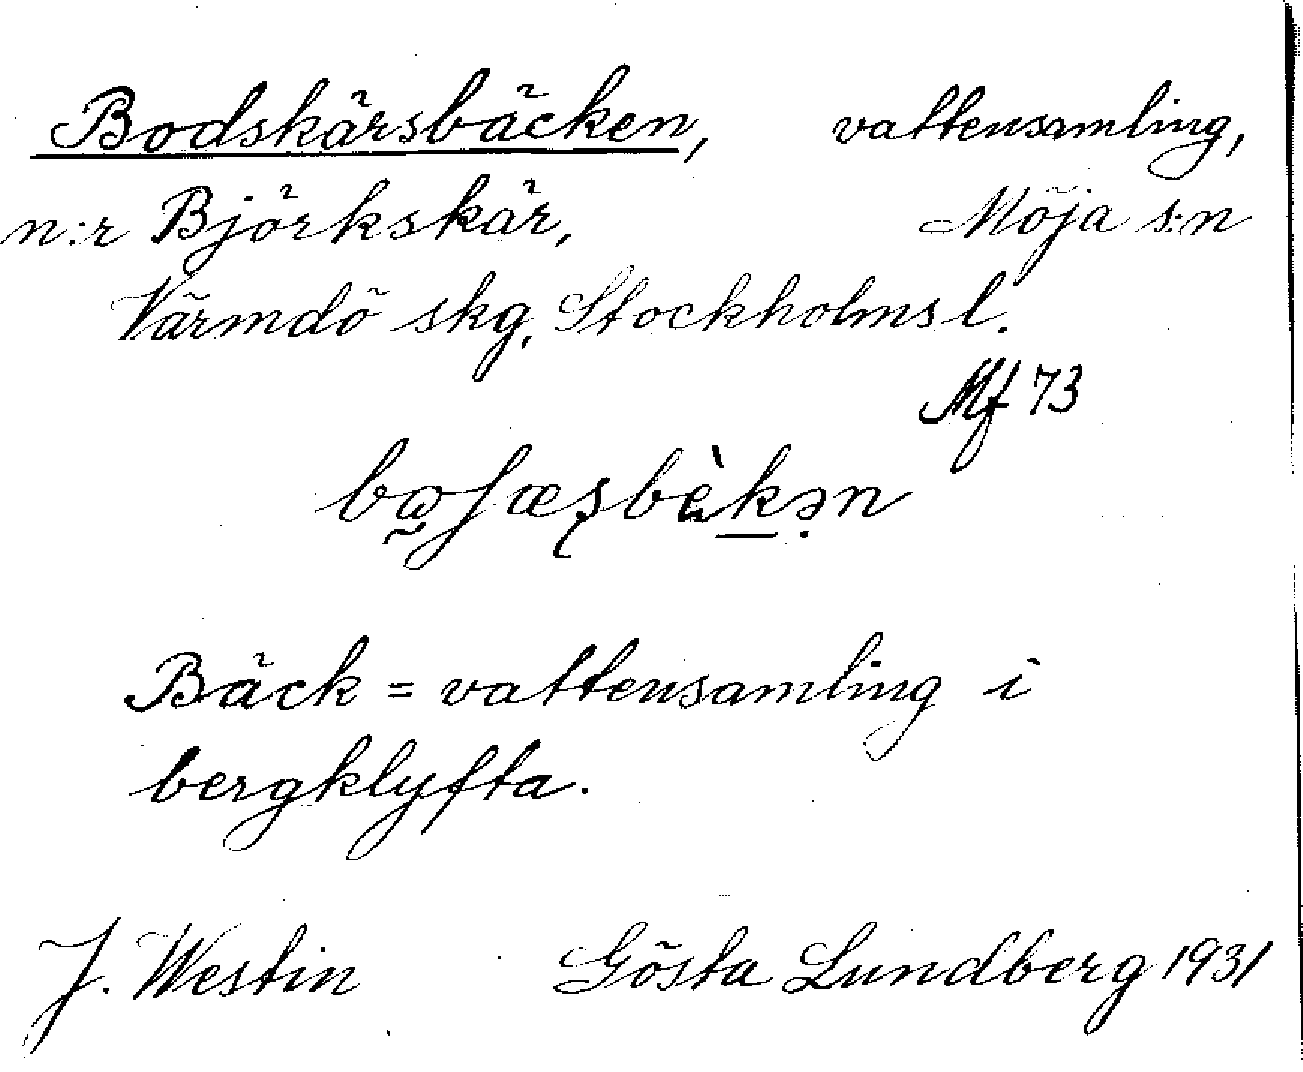 Bodskärsbäcken, vattensamling,
n:r Björkskär, Möja s:n
Värmdö skg, Stockholms l.
Mf 73
Bäck = vattensamling i
bergklyfta.
J. Westin Gösta Lundberg 1931